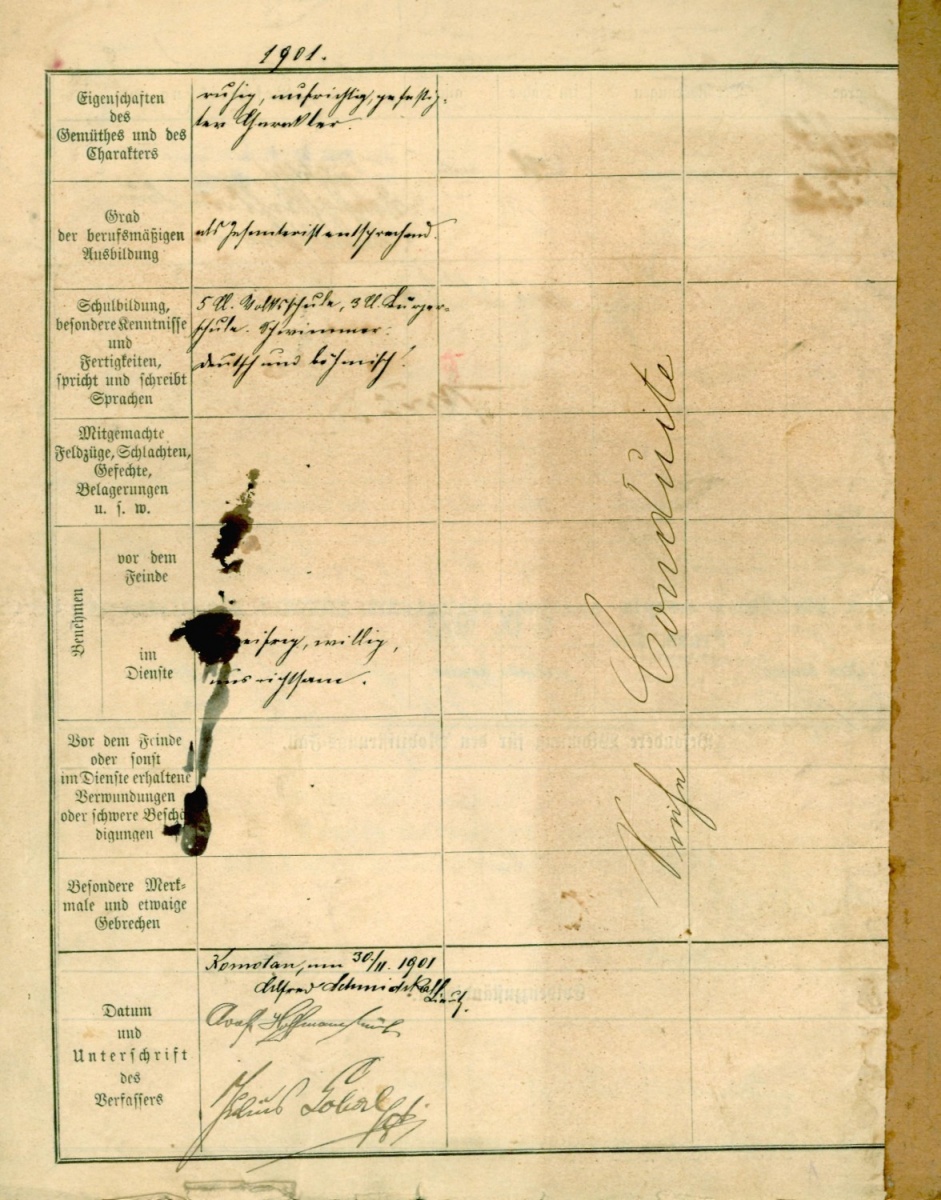 1901.
Eigenschaften
des
Gemüthes und des
Charakters
ruhig, aufrichtig, gefestig-
ter Charakter.
Grad
der berufsmäßigen
Ausbildung
als Infanterist entsprechend.
Schulbildung,
besondere Kenntnisse
und
Fertigkeiten,
spricht und schreibt
Sprachen
5 Kl. Volksschule, 3 Kl. Bürger-
schule. Schwimmer.
deutsch und böhmisch.
Mitgemachte
Feldzüge, Schlachten,
Gefechte,
Belagerungen
u. s. w.
Benehmen
vor dem
Feinde
im
Dienste
eifrig, willig,
Vor dem Feinde
oder sonst
im Dienste erhaltene
Verwundungen
oder schwere Beschä-
digungen
Besondere Merk-
male und etwaige
Gebrechen
Datum
und
Unterschrift
des
Verfassers
Komotau, am 30/11. 1901
Alfred
Hoffmann
Julius
Conduite